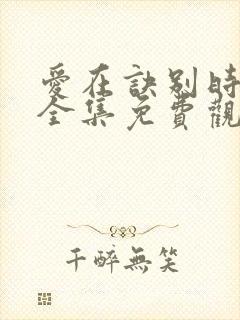 愛在訣別時
全集免費觀
千醉無笑